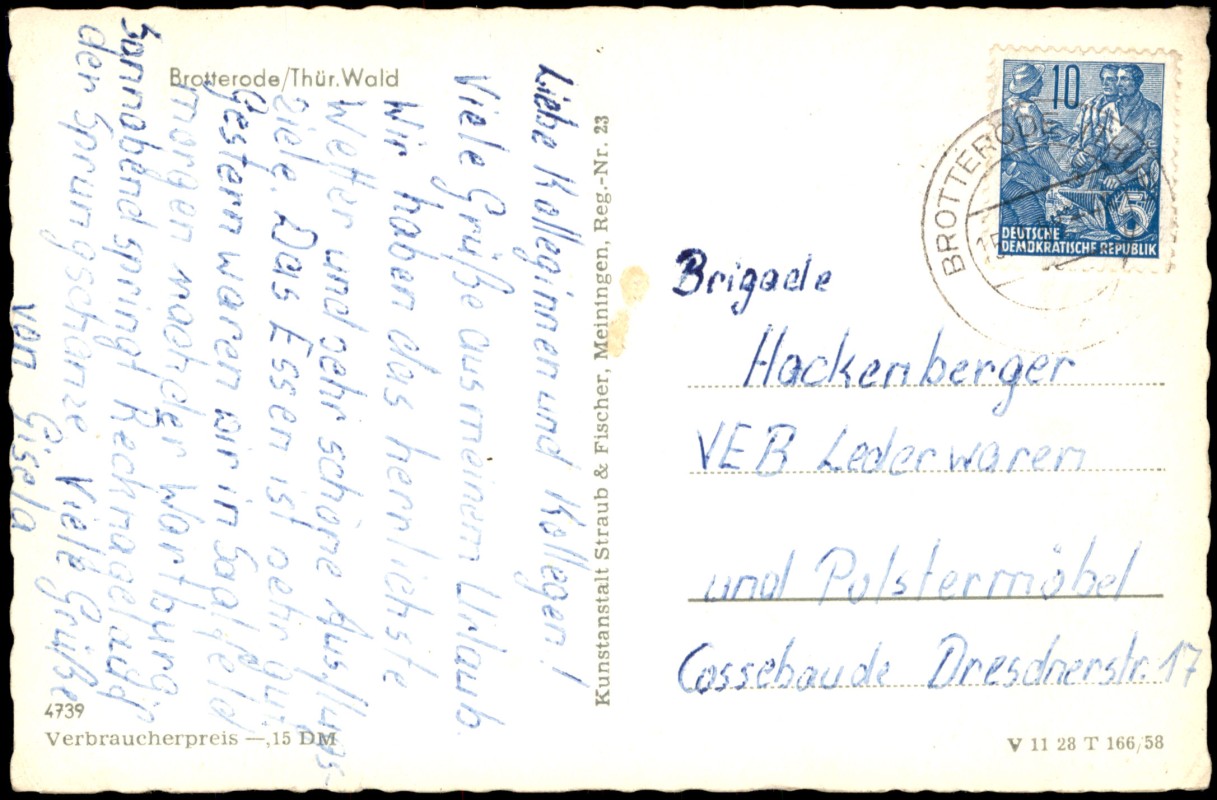 Brotterode/Thür. Wald
Liebe Kolleginnen und Kollegen!
Viele Grüße aus meinem Urlaub
Wir haben das herrlichste
Wetter und sehr schöne Ausflugs-
ziele. Das Essen ist sehr gut
Gestern waren wir in Saalfeld
morgen nach der Wartburg
Sonnabend springt Recknagel auf
der Sprungschanze Viele Grüße
von Gisela
4739
Verbraucherpreis —,15 DM
Kunstanstalt Straub & Fischer, Meiningen, Reg.-Nr. 23
10
5
DEUTSCHE
DEMOKRATISCHE REPUBLIK
BROTTERODE
Brigade
Hackenberger
VEB Lederwaren
und Polstermöbel
Cossebaude Dresdnerstr. 17
V 11 28 T 166/58